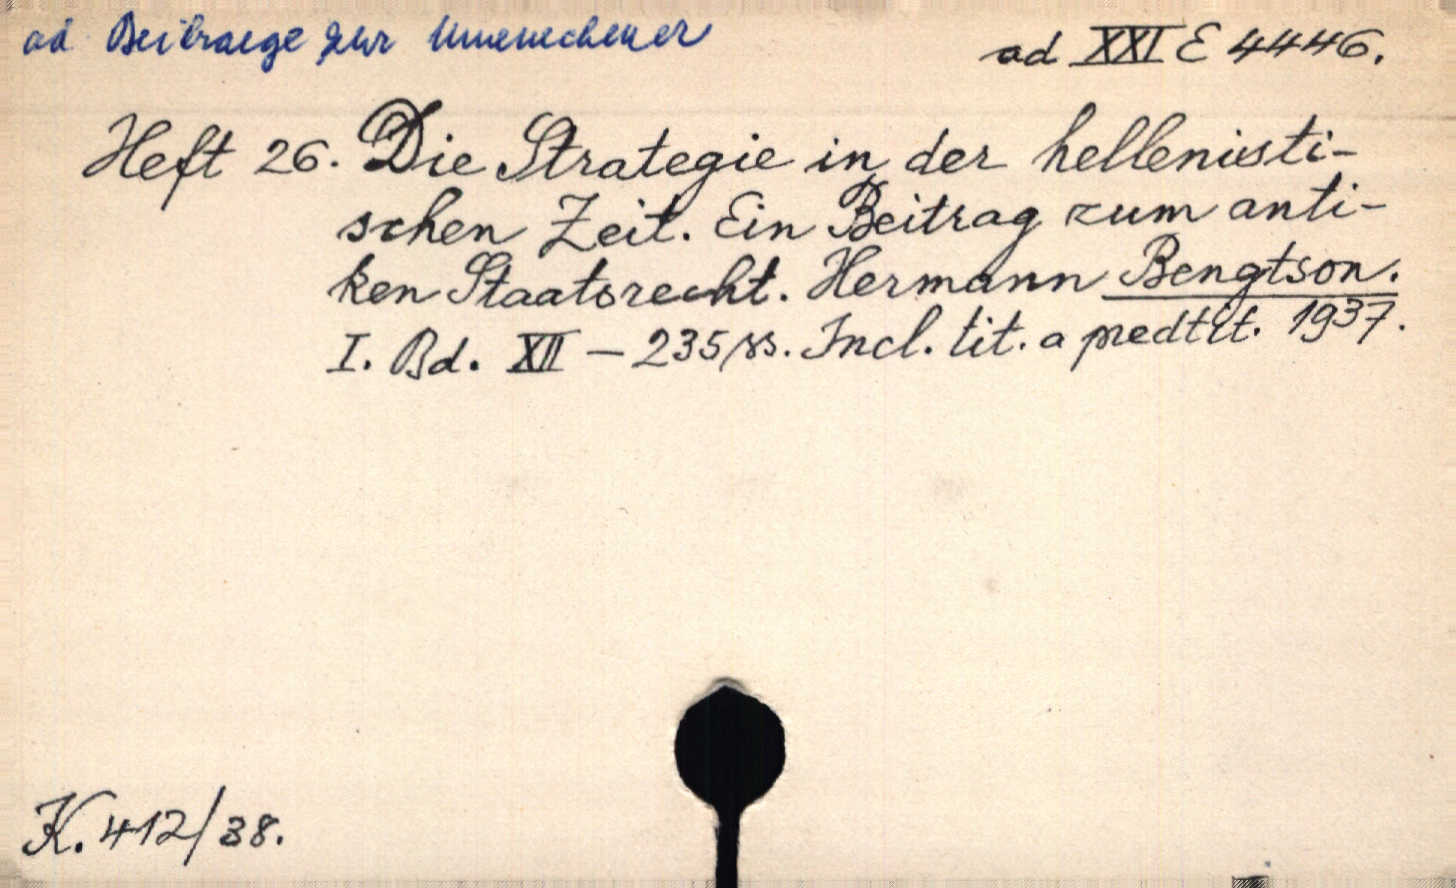 ad Beitraege zur Muenchener
ad XXI E 4446.
Heft 26. Die Strategie in der hellenisti-
schen Zeit. Ein Beitrag zum anti-
ken Staatsrecht. Hermann Bengtson.
I. Bd. XII – 235 ss. Incl. tit. a predtit. 1937.
K. 412/38.